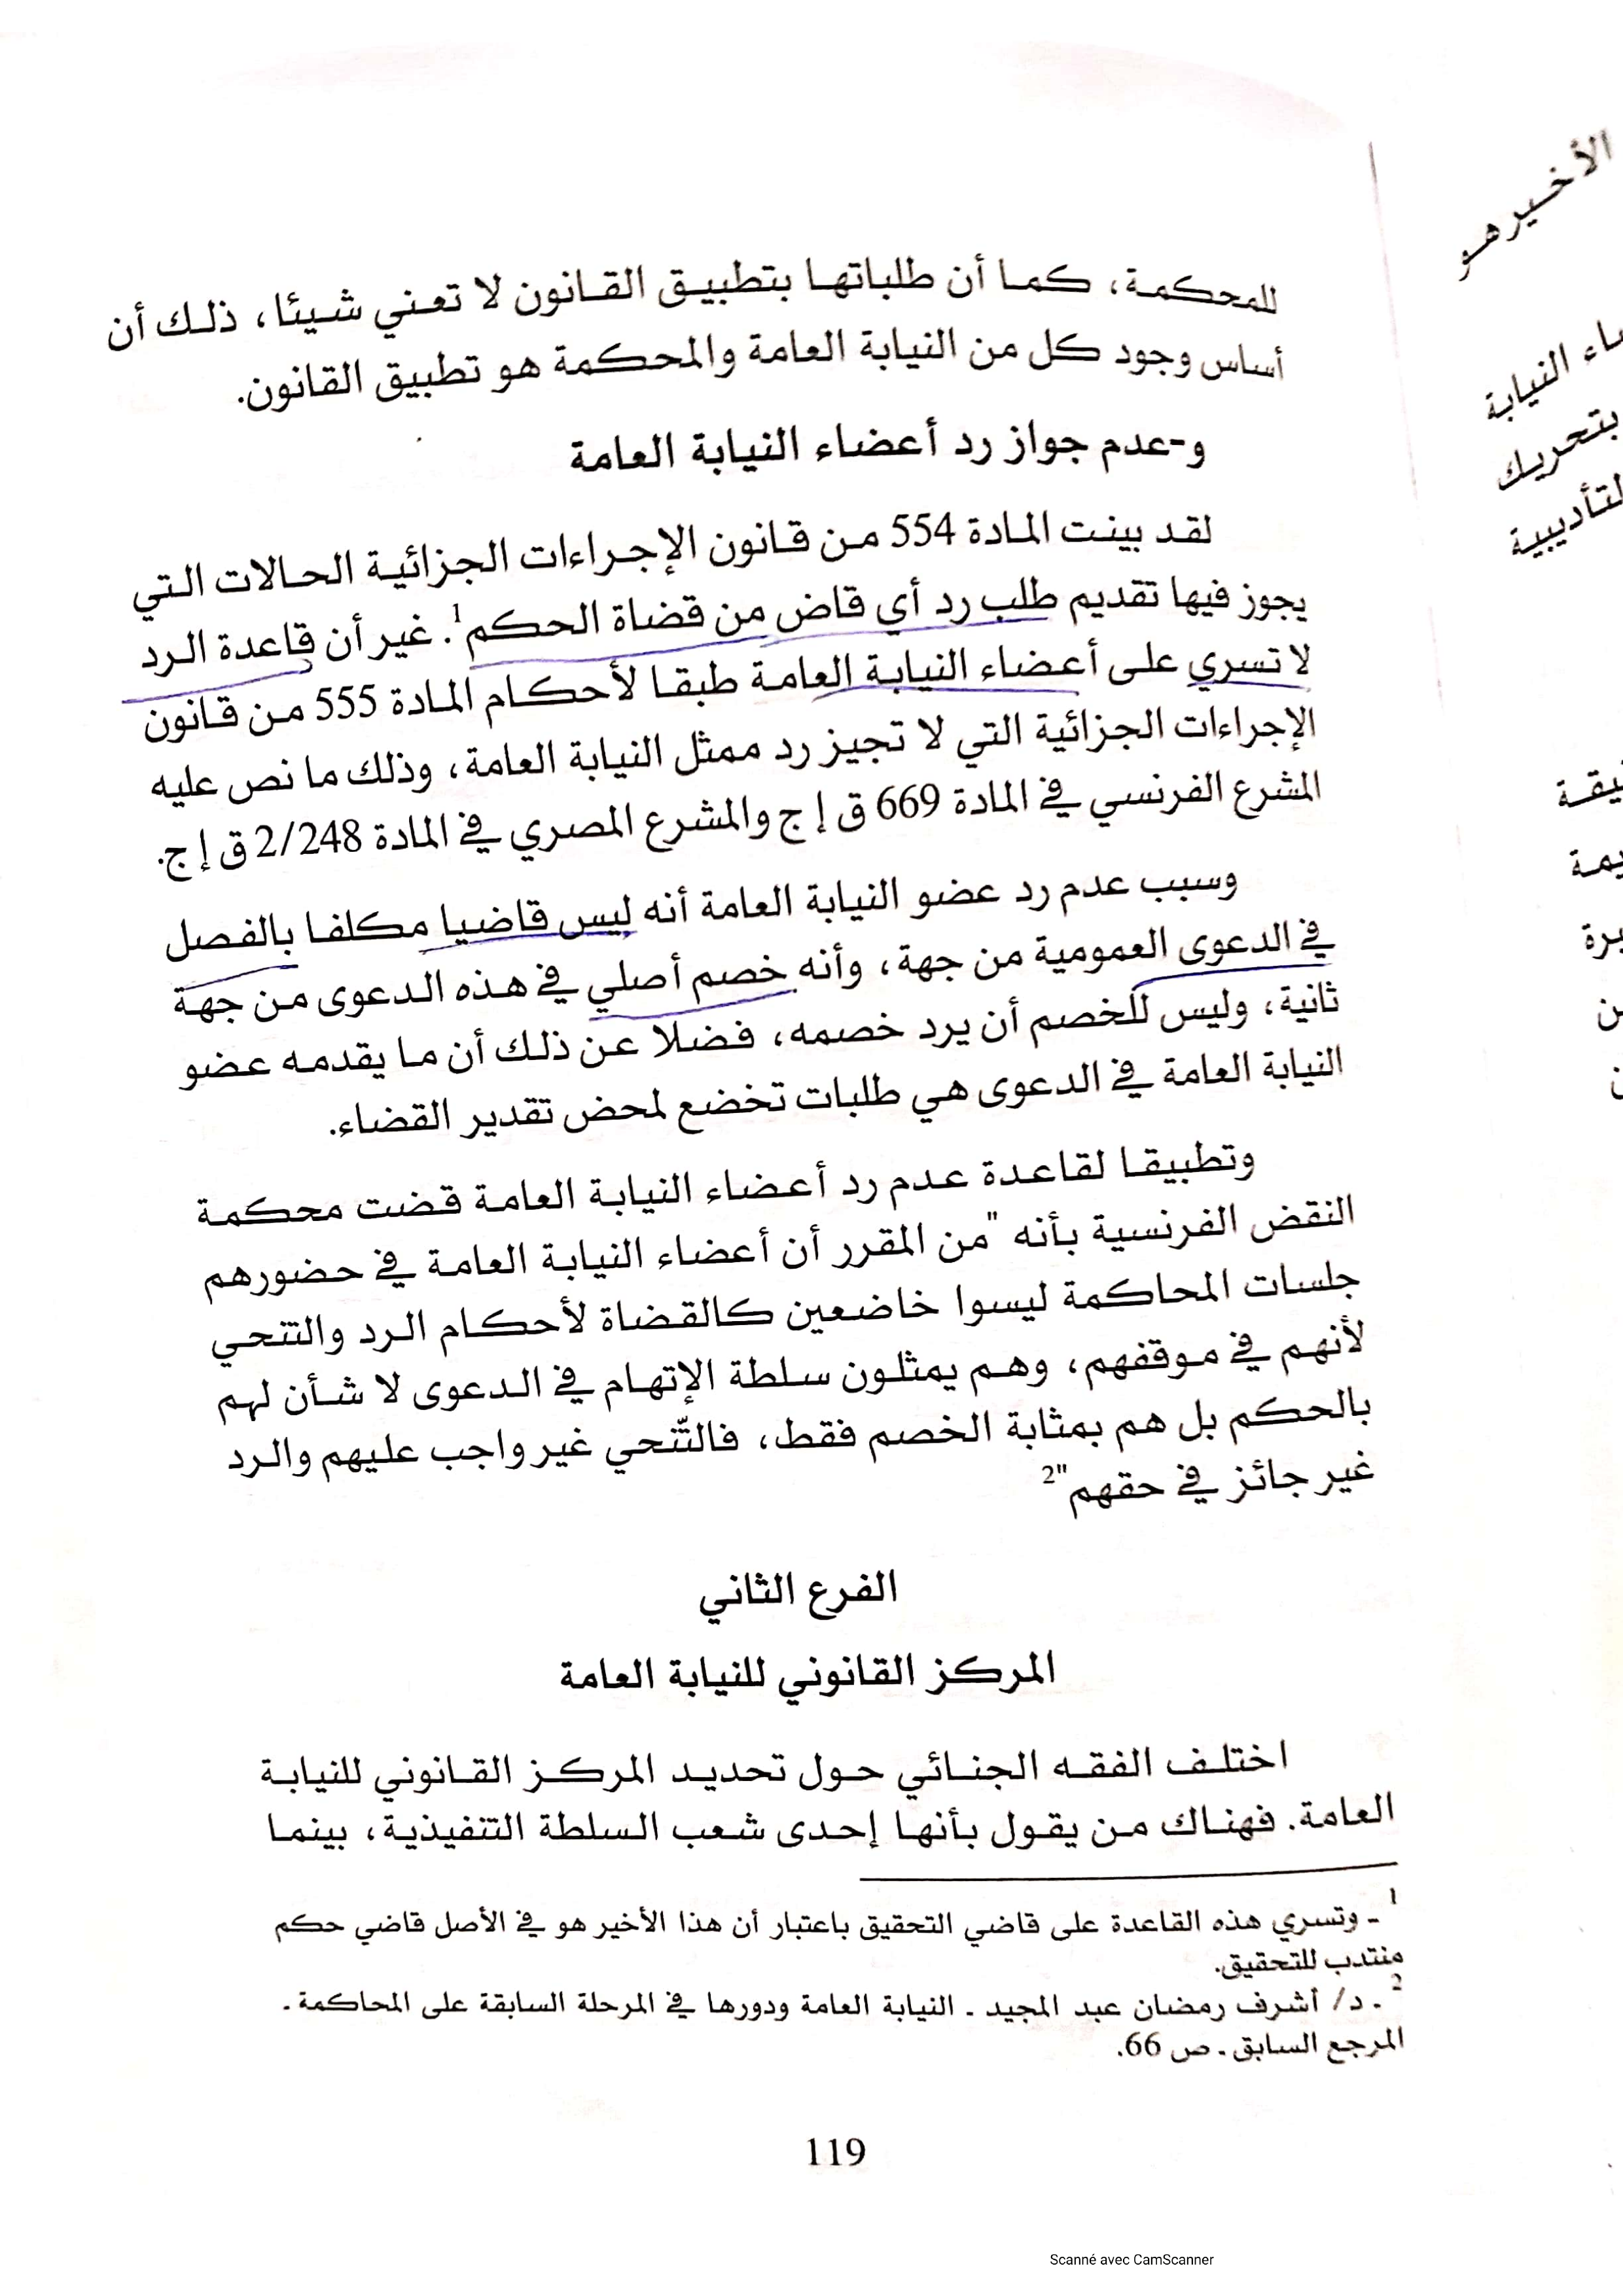 للمحكمة، كما أن طلباتها بتطبيق القانون لا تعني شيئا، ذلك أن
أساس وجود كل من النيابة العامة والمحكمة هو تطبيق القانون.
و-عدم جواز رد أعضاء النيابة العامة
لقد بينت المادة 554 من قانون الإجراءات الجزائية الحالات التي
يجوز فيها تقديم طلب رد أي قاض من قضاة الحكم¹. غير أن قاعدة الرد
لا تسري على أعضاء النيابة العامة طبقا لأحكام المادة 555 من قانون
الإجراءات الجزائية التي لا تجيز رد ممثل النيابة العامة، وذلك ما نص عليه
المشرع الفرنسي في المادة 669 ق إ ج والمشرع المصري في المادة 2/248 ق إ ج.
وسبب عدم رد عضو النيابة العامة أنه ليس قاضيا مكلفا بالفصل
في الدعوى العمومية من جهة، وأنه خصم أصلي في هذه الدعوى من جهة
ثانية، وليس للخصم أن يرد خصمه، فضلا عن ذلك أن ما يقدمه عضو
النيابة العامة في الدعوى هي طلبات تخضع لمحض تقدير القضاء.
وتطبيقا لقاعدة عدم رد أعضاء النيابة العامة قضت محكمة
النقض الفرنسية بأنه "من المقرر أن أعضاء النيابة العامة في حضورهم
جلسات المحاكمة ليسوا خاضعين كالقضاة لأحكام الرد والتنحي
لأنهم في موقفهم، وهم يمثلون سلطة الإتهام في الدعوى لا شأن لهم
بالحكم بل هم بمثابة الخصم فقط، فالتّنحي غير واجب عليهم والرد
غير جائز في حقهم"²
الفرع الثاني
المركز القانوني للنيابة العامة
اختلف الفقه الجنائي حول تحديد المركز القانوني للنيابة
العامة. فهناك من يقول بأنها إحدى شعب السلطة التنفيذية، بينما
¹ - وتسري هذه القاعدة على قاضي التحقيق باعتبار أن هذا الأخير هو في الأصل قاضي حكم
منتدب للتحقيق.
² - د/ أشرف رمضان عبد المجيد - النيابة العامة ودورها في المرحلة السابقة على المحاكمة -
المرجع السابق - ص 66.
119
الأخير هو
النيابة
بتحريك
Scanné avec CamScanner